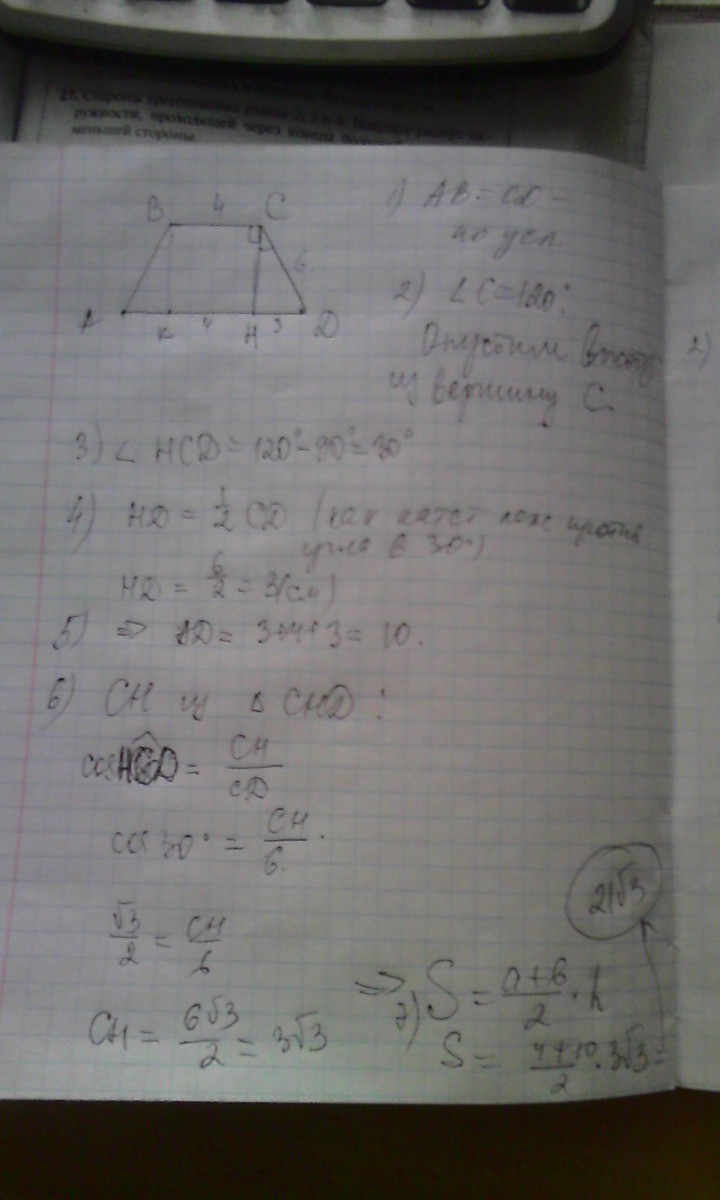 27. Стороны треугольника
ружности, проходящей через концы
меньшей стороны.
B 4 C
6
A K 4 H 3 D
1) AB = CD –
по усл.
2) ∠ C = 120°.
Опустим высоту
из вершину C.
3) ∠ HCD = 120° – 90° = 30°
4) HD = 1/2 CD (как катет леж против
угла в 30°)
HD = 6/2 = 3(см)
5) ⇒ AD = 3+4+3 = 10.
6) CH из Δ CHD:
cos HCD = CH/CD
cos 30° = CH/6.
√3/2 = CH/6
CH = 6√3/2 = 3√3
⇒ 7) S = a+b/2 · h
S = 4+10/2 · 3√3 =
21√3
2)